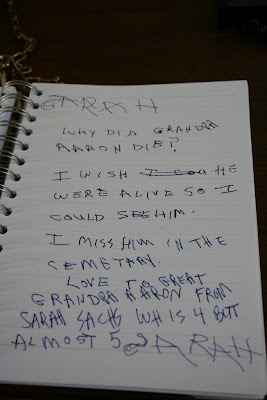 SARAH
WHY DID GRANDPA
AARON DIE?
I WISH I COU HE
WERE ALIVE SO I
COULD SEE HIM.
I MISS HIM IN THE
SEMETARY.
LOVE TO GREAT
GRANDPA AARON FROM
SARAH SACHS WH IS 4 BUTT
ALMOST 5 SARAH